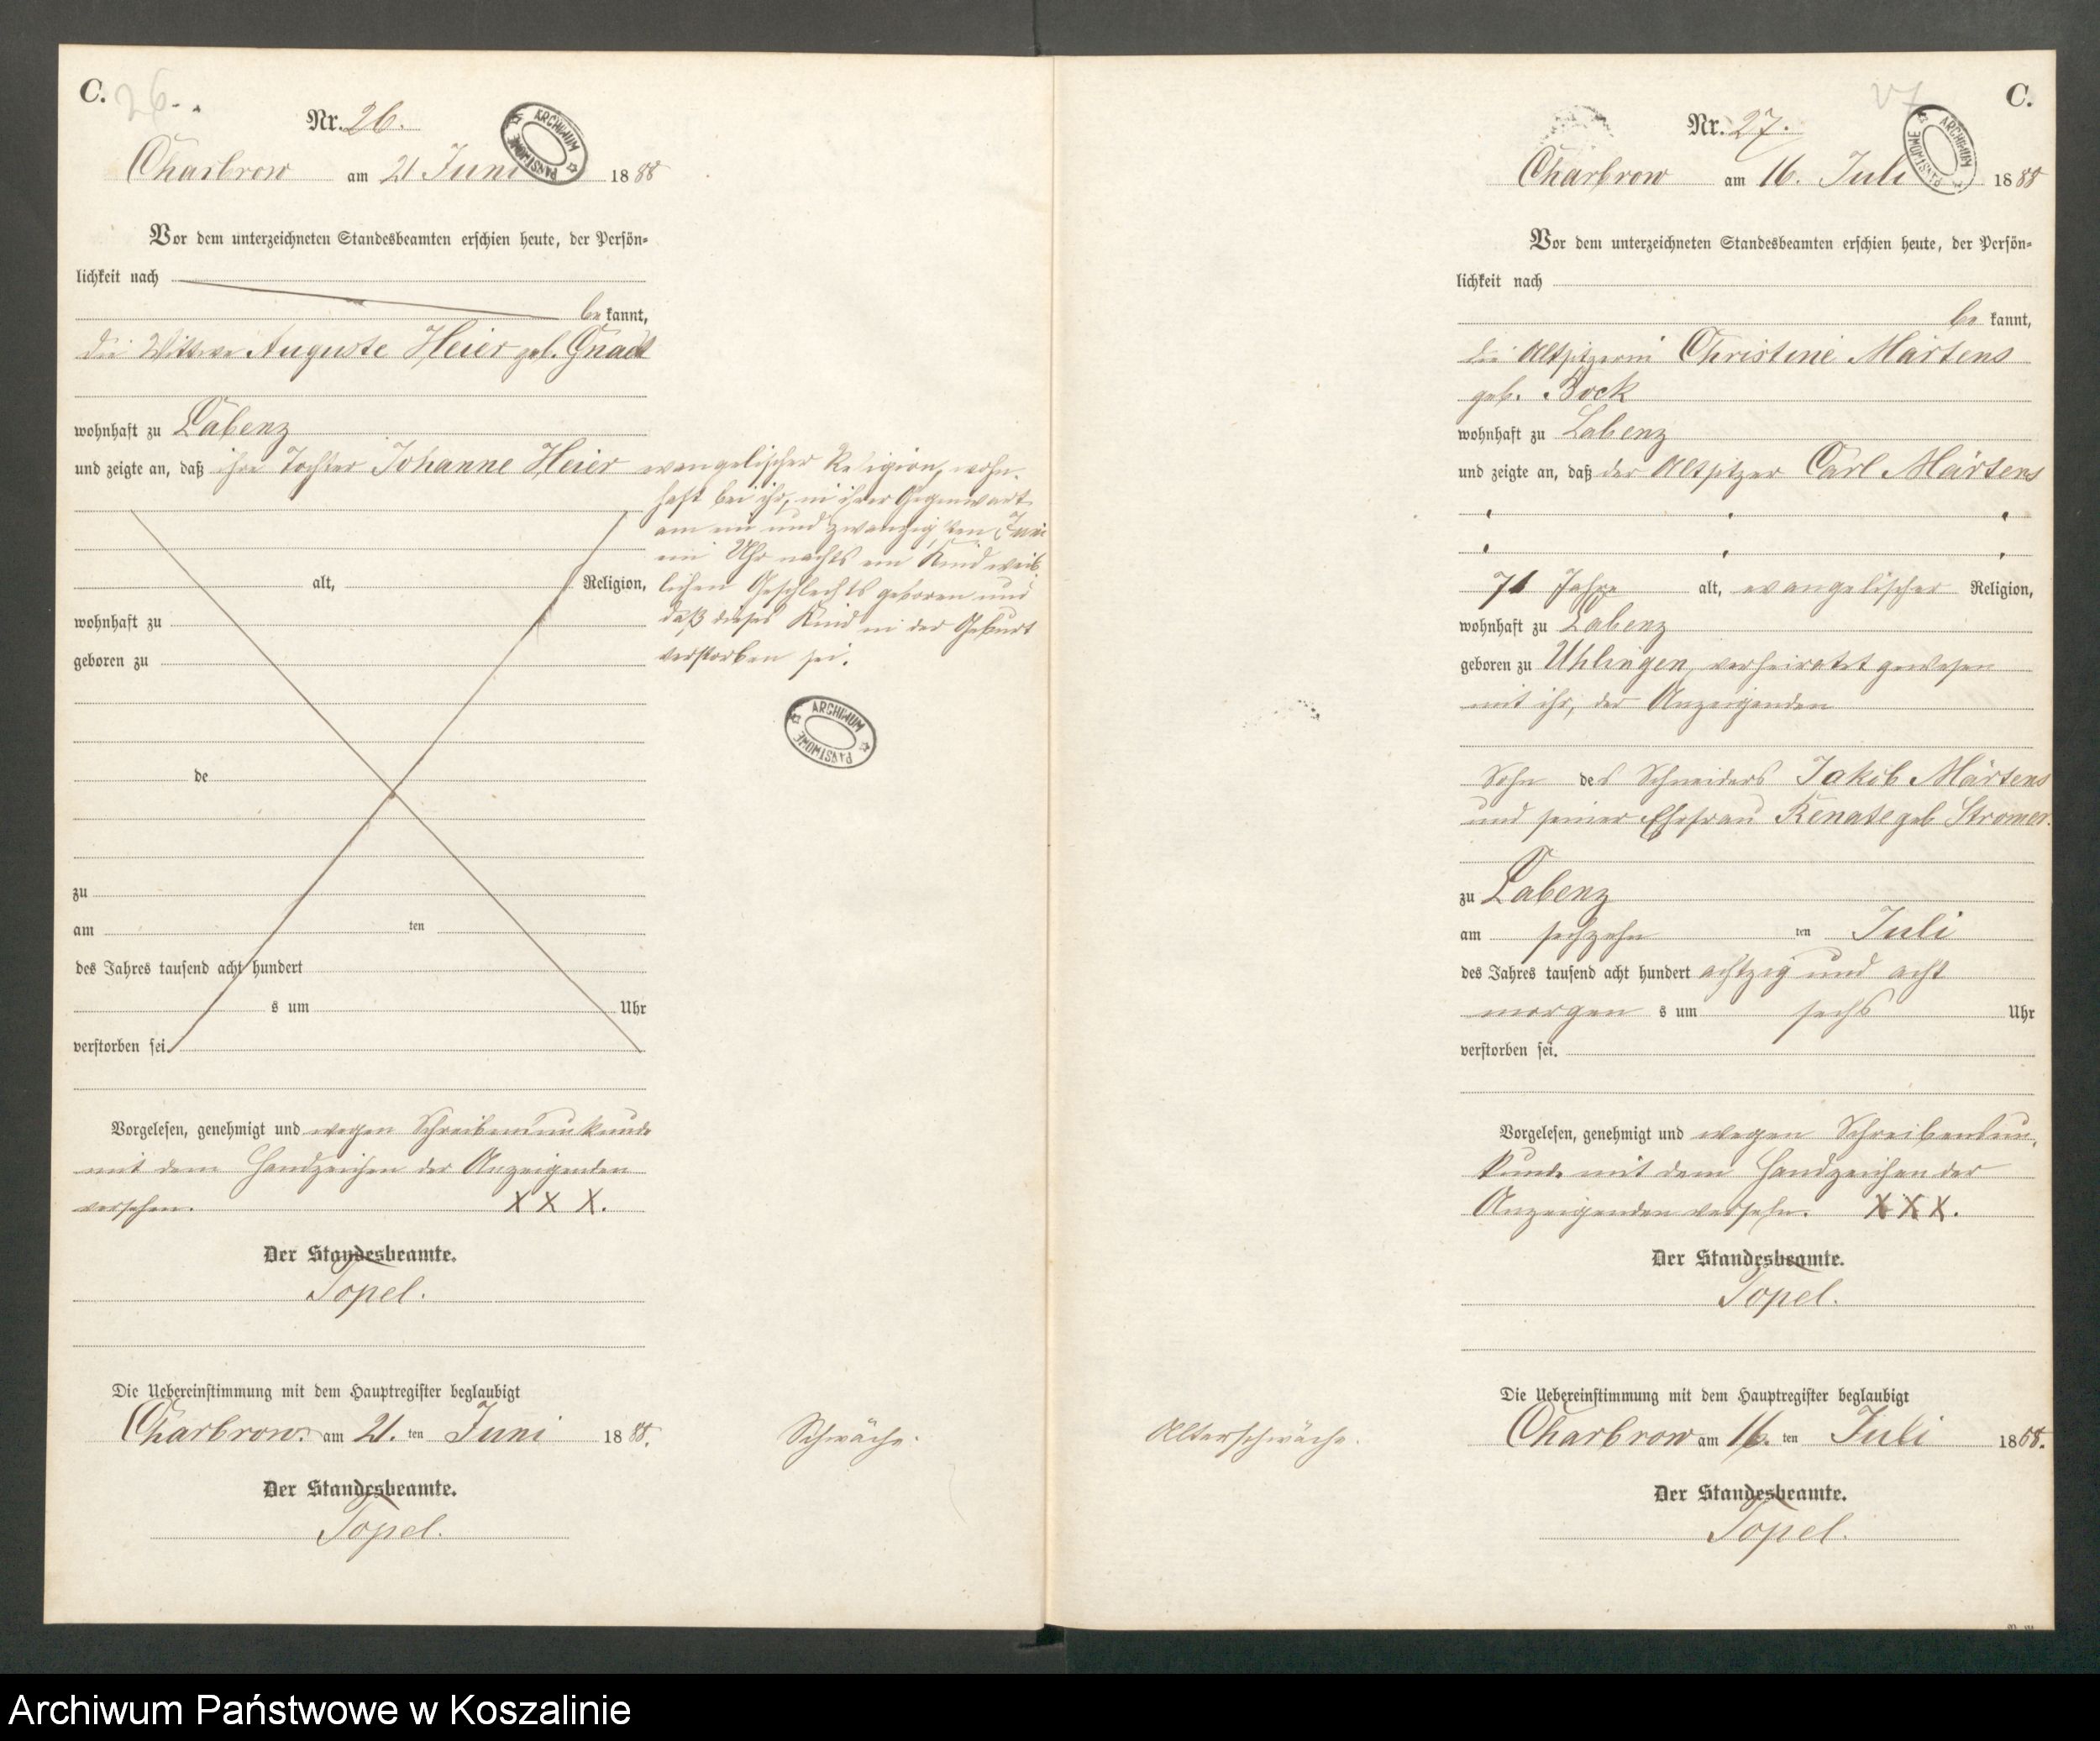 C.
26.
Nr. 26.
ARCHIWUM PAŃSTWOWE
Charbrow am 21 Juni 1888
Vor dem unterzeichneten Standesbeamten erschien heute, der Persön-
lichkeit nach
be kannt,
die Wittwe Auguste Heier geb. Gnadt
wohnhaft zu Labenz
und zeigte an, daß ihre Tochter Johanne Heier
evangelischer Religion, wohn-
haft bei ihr, in ihrer Gegenwart
am ein und zwanzigsten Juni
ein Uhr nachts ein Kind weib-
lichen Geschlechts geboren und
daß dieses Kind in der Geburt
verstorben sei.
alt, Religion,
wohnhaft zu
geboren zu
ARCHIWUM PAŃSTWOWE
de
zu
am ten
des Jahres tausend acht hundert
s um Uhr
verstorben sei.
Vorgelesen, genehmigt und wegen Schreibensunkunde
mit dem Handzeichen der Anzeigenden
versehen. X X X.
Der Standesbeamte.
Topel.
Die Uebereinstimmung mit dem Hauptregister beglaubigt
Charbrow. am 21. ten Juni 1888.
Schwäche.
Der Standesbeamte.
Topel.
C.
27
Nr. 27.
ARCHIWUM PAŃSTWOWE
Charbrow am 16. Juli 1888
Vor dem unterzeichneten Standesbeamten erschien heute, der Persön-
lichkeit nach
be kannt,
die Altsitzerin Christine Märtens
geb. Bock
wohnhaft zu Labenz
und zeigte an, daß der Altsitzer Carl Märtens
71 Jahre alt, evangelischer Religion,
wohnhaft zu Labenz
geboren zu Uhlingen, verheiratet gewesen
mit ihr, der Anzeigenden
Sohn des Schneiders Jakob Märtens
und seiner Ehefrau Renate geb Stromer.
zu Labenz
am sechzehn ten Juli
des Jahres tausend acht hundert achtzig und acht
morgen s um sechs Uhr
verstorben sei.
Vorgelesen, genehmigt und wegen Schreibensun-
kunde mit dem Handzeichen der
Anzeigenden versehn. X X X.
Der Standesbeamte.
Topel.
Die Uebereinstimmung mit dem Hauptregister beglaubigt
Alterschwäche.
Charbrow am 16. ten Juli 1888.
Der Standesbeamte.
Topel.
Archiwum Państwowe w Koszalinie